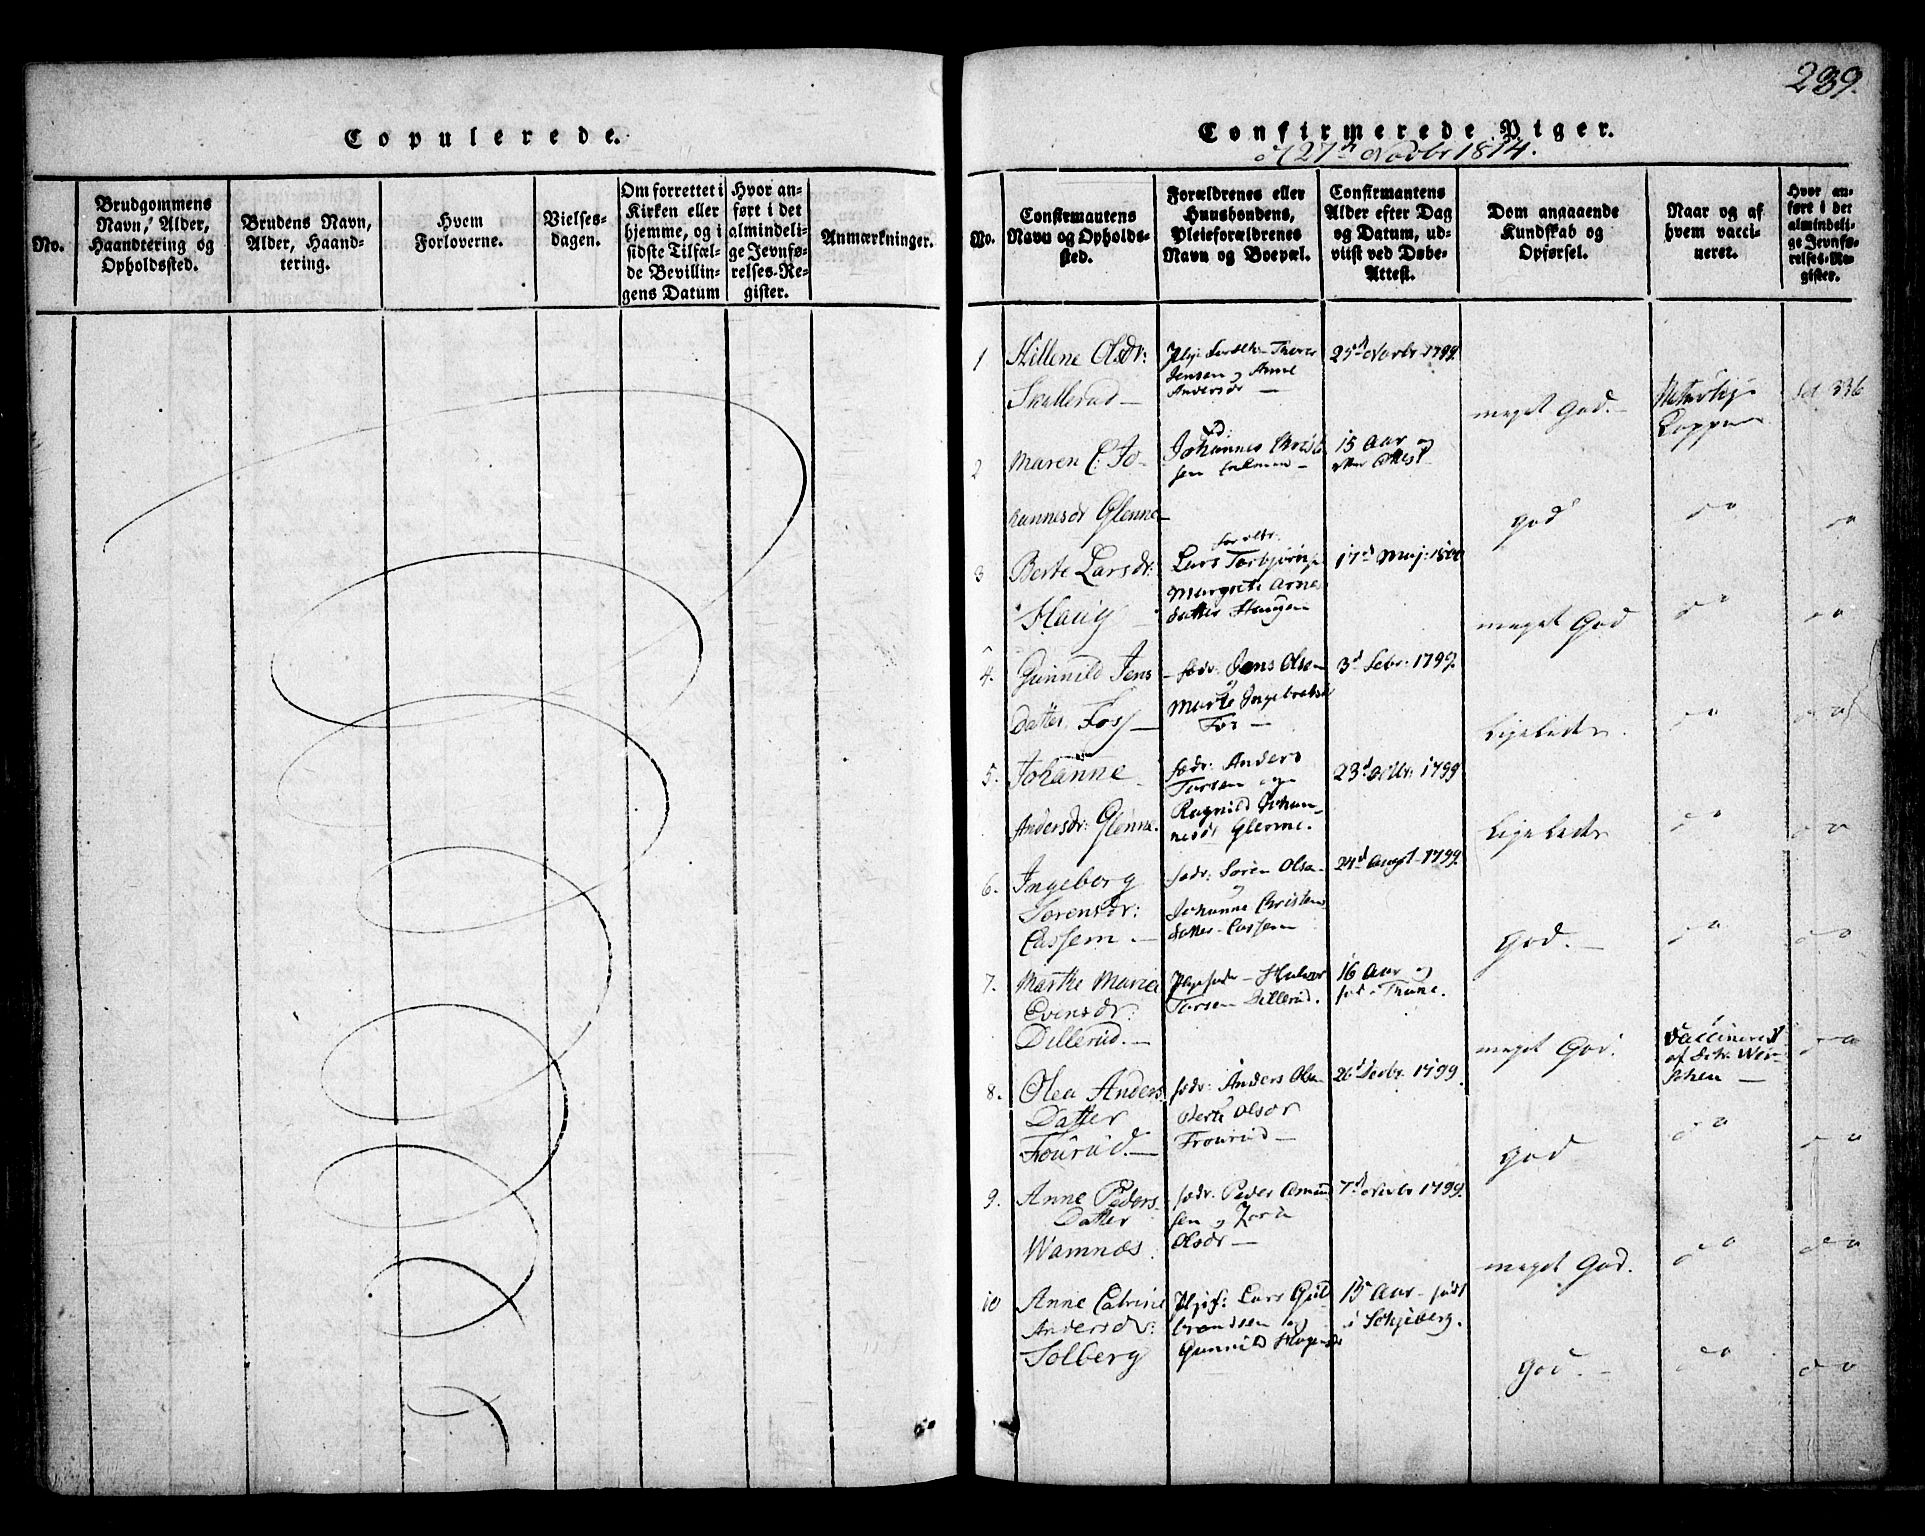 239.
Copulerede.
No.
Brudgommens Navn, Alder, Haandtering og Opholdssted.
Brudens Navn, Alder, Haandtering.
Hvem Forloverne.
Vielsesdagen.
Om forrettet i Kirken eller hjemme, og i sidste Tilfælde Bevillingens Datum
Hvor anført i det almindelige Jevnførelses-Register.
Anmærkninger.
Confirmerede Piger.
27de Novbr 1814.
No.
Confirmantens Navn og Opholdssted.
Forældrenes eller Huusbondens, Pleieforældrenes Navn og Boepæl.
Confirmantens Alder efter Dag og Datum, udviist ved Døbe-Attest.
Dom angaaende Kundskab og Opførsel.
Naar og af hvem vaccineret.
Hvor anført i det almindelige Jevnførelses-Register.
1 Hillene Olsdr:
Skullerud
Jensen og Anne
Andersdr
25d Novbr 1799
meget God.
Naturlige
Kopper
336
2 Maren C. Jo-
hannesdr Glenne
Johannes Christ
sen
15 Aar og
efter Attest
god
do
do
3 Berte Larsdr:
Haug
Lars Torbjørns
Margrete Arne
datter Haugen
17d Maj: 1800
meget God
do
do
4. Gunnild Jens
Datter Foss
fædr: Jens Olsen
og
Marte Ingebretsd
Fos
3d Febr: 1799.
Ligeledes.
do
do
5. Johanne
Andersdr: Glenne.
fædr: Anders
Torsen og
Ragnild Johan-
nesdr Glenne.
23d Octbr: 1799
Ligeledes
do
do
6. Ingeborg
Sørensdr:
Cassem.
fædr: Søren Olsen
og
Johanne Christens
datter Cassem
24d Augst 1799.
God.
do
do
7. Marthe Maria
Evensdr:
Dillerud.
Torsen Dillerud.
16 Aar og
Thune.
meget God.
Vaccineret
af
do
8. Olea Anders
Datter
Fourud.
fædr: Anders Olsen
Berte Olsdr
Frourud
26d Decbr. 1799.
god
do
do
9. Anne Peders
Datter
Wamnæs.
fædr: Peder Amund
sen og
Olsdr
7d Novbr 1799.
meget God.
do
do
10 Anne Catrine
Andersdr:
Solberg
Plejef: Lars Gul
brandsen og
Gunnild Hagensdr
15 Aar født
i Schjeberg.
God.
do
do